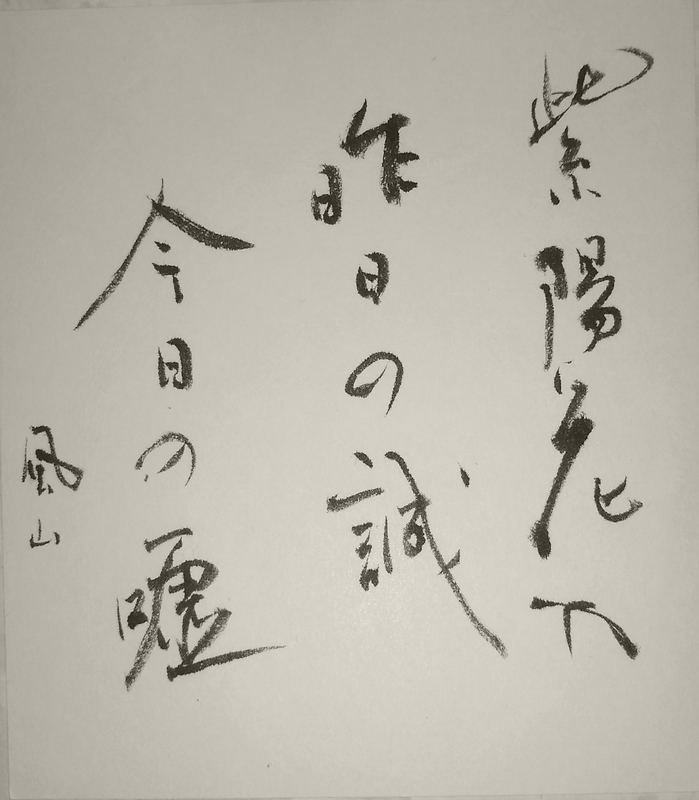 紫陽花や
昨日の誠
今日の嘘
風山